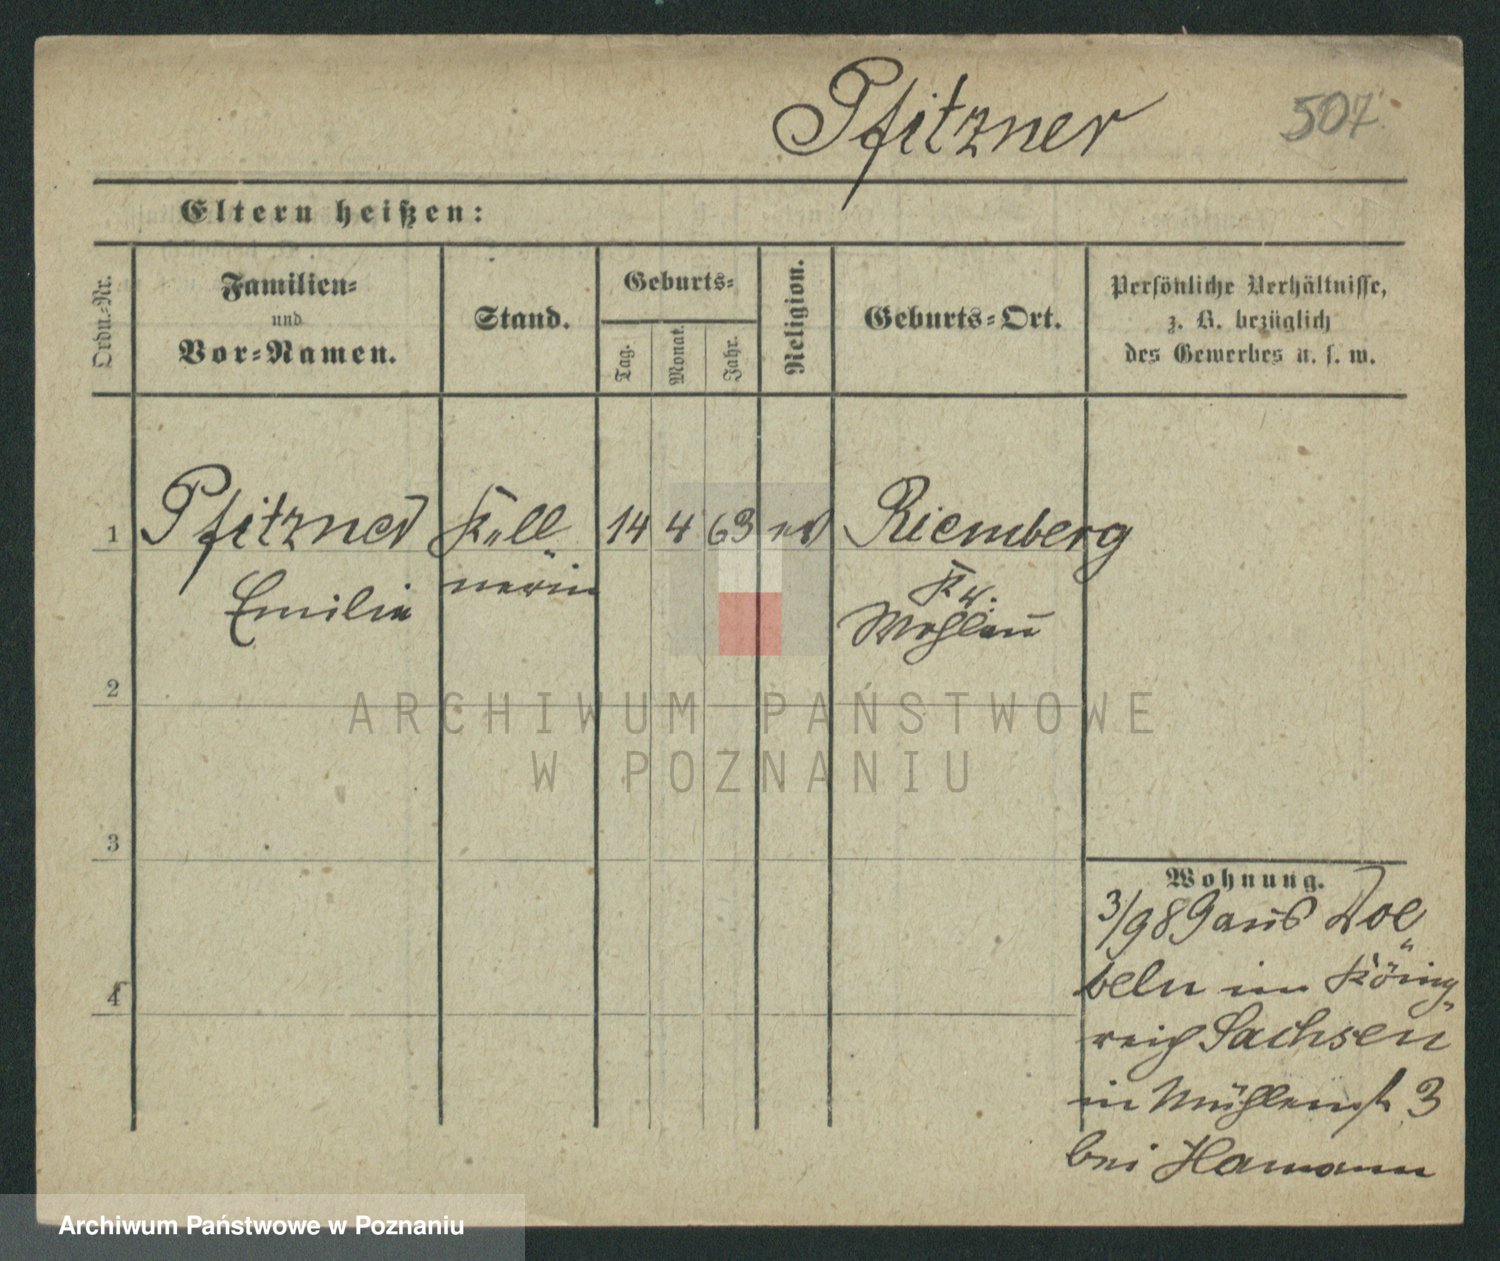 Pfitzner
507
Eltern heißen:
Ordn.-Nr.
Familien-
und
Vor-Namen.
Stand.
Geburts-
Tag.
Monat.
Jahr.
Religion.
Geburts-Ort.
Persönliche Verhältnisse,
z. B. bezüglich
des Gewerbes u. s. w.
1
Pfitzner
Kell
14
4
63
ev
Riemberg
nerin
Emilie
Kr.
Wohlau
2
ARCHIWUM PAŃSTWOWE
W POZNANIU
3
Wohnung.
3/9 89 aus Doe
beln im König
reich Sachsen
in Mühlenst 3
bei Hamann
4
Archiwum Państwowe w Poznaniu